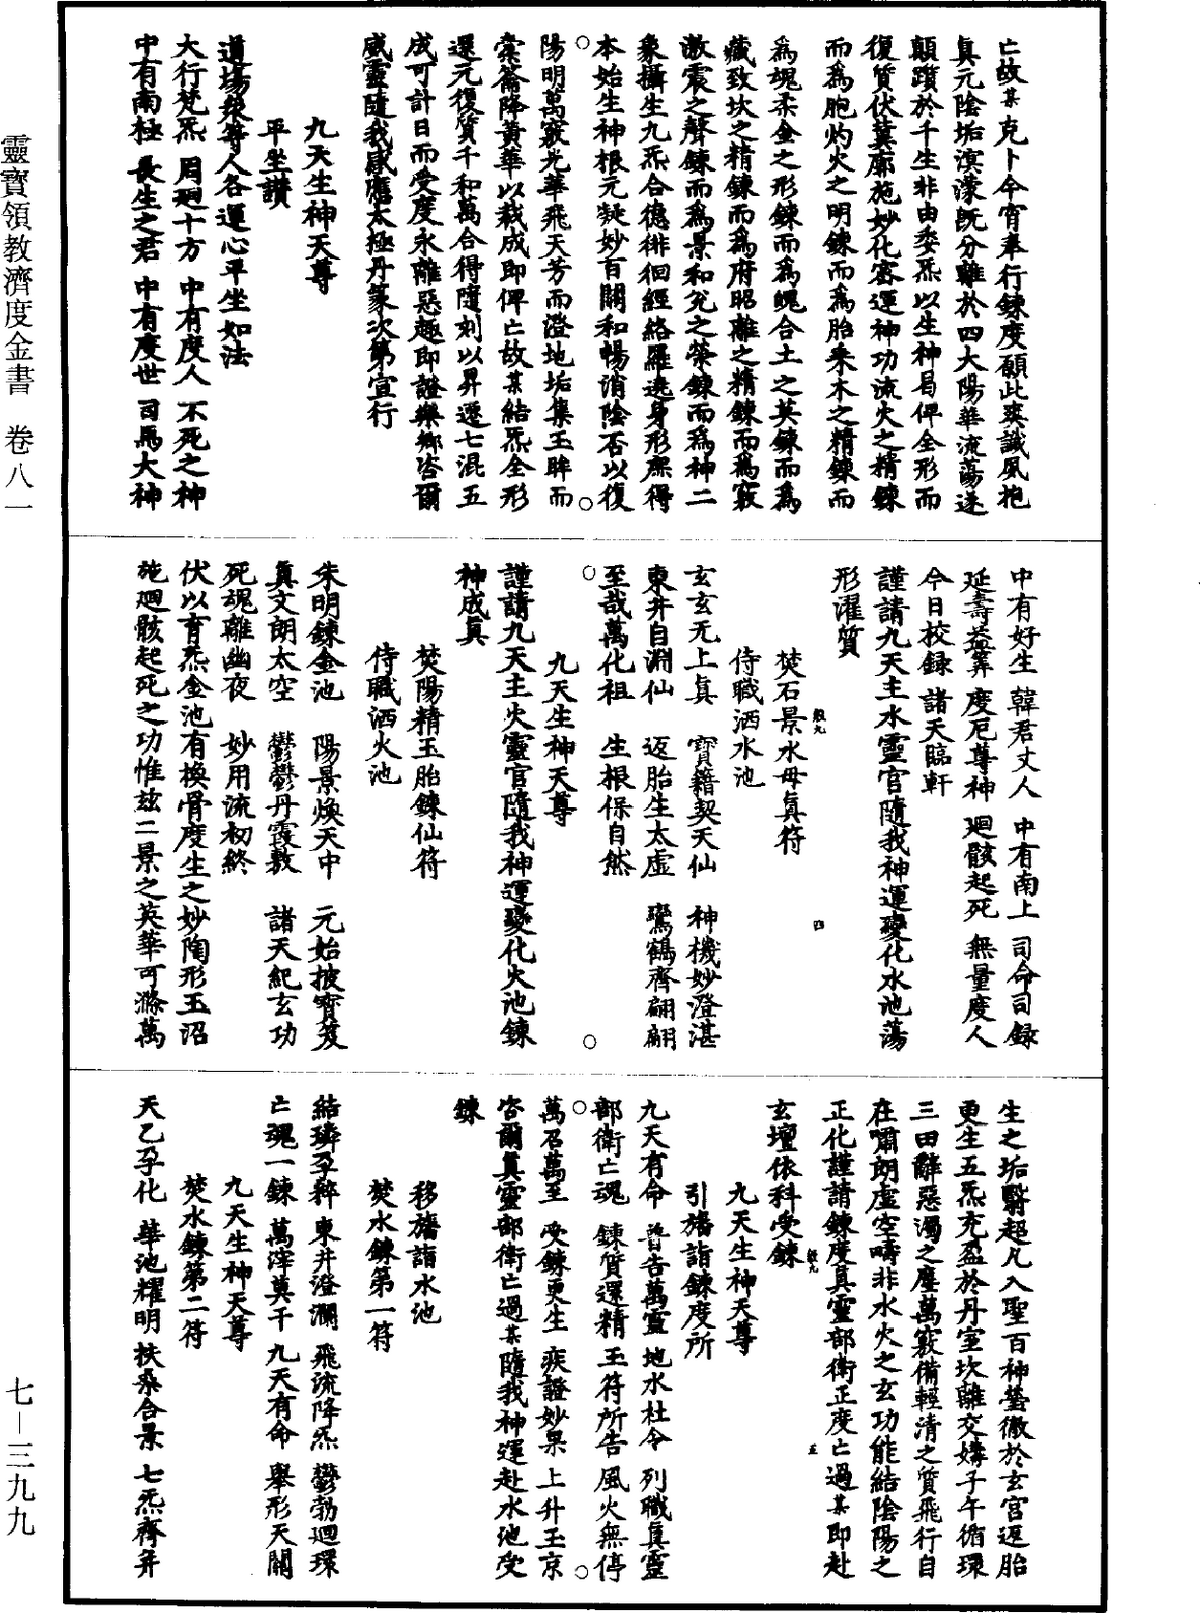 亡故某克卜今宵奉行鍊度願此爽識夙抱
真元陰垢溟濛既分離於四大陽華流蕩遂
顛躓於千生非由委炁以生神曷俾全形而
復質伏冀廓施妙化密運神功流火之精鍊
而爲胞灼火之明鍊而爲胎米木之精鍊而
爲魂柔金之形鍊而爲魄合土之英鍊而爲
藏致坎之精鍊而爲府昭離之精鍊而爲竅
激震之聲鍊而爲景和兌之榮鍊而爲神二
象攝生九炁合德徘徊經絡羅遶身形庶得
本始生神根元凝妙百關和暢消陰否以復
陽明萬竅光華飛天芳而澄地垢集玉眸而
棠蓊降黃華以裁成即俾亡故某結炁全形
還元復質千和萬合得隨刻以昇遷七混五
成可計日而受度永離惡趣即證樂鄉咨爾
威靈隨我感應太極丹篆次第宣行
九天生神天尊
平坐讃
道場衆等人各運心平坐如法
大行梵炁 周廻十方 中有度人 不死之神
中有南極 長生之君 中有度世 司馬大神
中有好生 韓君丈人 中有南上 司命司録
延壽益筭 度厄尊神 廻骸起死 無量度人
今日校録 諸天臨軒
謹請九天主水靈官隨我神運變化水池蕩
形濯質
焚石景水母真符
侍職洒水池
玄玄无上真 寶籍契天仙 神機妙澄湛
東井自淵仙 返胎生太虚 鸞鶴齊翩翩
至哉萬化祖 生根保自然
九天生神天尊
謹請九天主火靈官隨我神運變化火池鍊
神成真
焚陽精玉胎鍊仙符
侍職洒火池
朱明鍊金池 陽景煥天中 元始披寶笈
真文朗太空 鬱鬱丹霞敷 諸天紀玄功
死魂離幽夜 妙用流初終
伏以育炁金池有換骨度生之妙陶形玉沼
施廻骸起死之功惟玆二景之英華可滌萬
生之垢翳超凡入聖百神瑩徹於玄宫返胎
更生五炁充盈於丹室坎離交媾子午循環
三田辭惡濁之塵萬竅備輕清之質飛行自
在嘯朗虚空疇非水火之玄功能結陰陽之
正化謹請鍊度真靈部衛正度亡過某即赴
玄壇依科受鍊
九天生神天尊
引旛詣鍊度所
九天有命 普告萬靈 地水社令 列職真靈
部衛亡魂 鍊質還精 玉符所告 風火無停
萬召萬至 受鍊更生 疾證妙果 上升玉京
咨爾真靈部衛亡過某隨我神運赴水池受
鍊
移旛詣水池
焚水鍊第一符
結璘孕粹 東井澄瀾 飛流降炁 鬱勃廻環
亡魂一鍊 萬滓莫干 九天有命 舉形天關
九天生神天尊
焚水鍊第二符
天乙孕化 華池耀明 扶桑合景 七炁齊并
靈寶領教濟度金書 卷八一
七—三九九